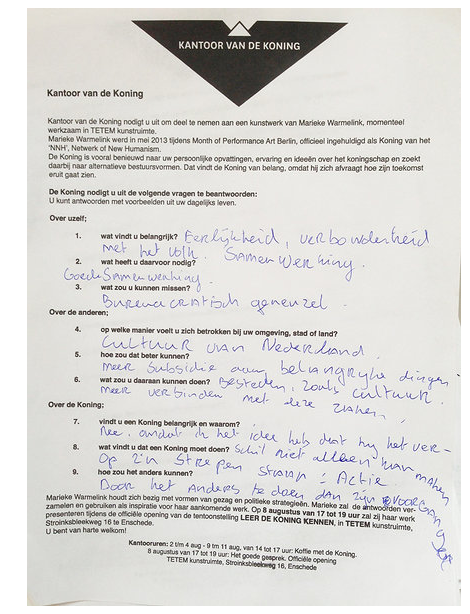 KANTOOR VAN DE KONING
Kantoor van de Koning
Kantoor van de Koning nodigt u uit om deel te nemen aan een kunstwerk van Marieke Warmelink, momenteel
werkzaam in TETEM kunstruimte.
Marieke Warmelink werd in mei 2013 tijdens Month of Performance Art Berlin, officieel ingehuldigd als Koning van het
'NNH', Netwerk of New Humanism.
De Koning is vooral benieuwd naar uw persoonlijke opvattingen, ervaring en ideeën over het koningschap en zoekt
daarbij naar alternatieve bestuursvormen. Dat vindt de Koning van belang, omdat hij zich afvraagt hoe zijn toekomst
eruit gaat zien.
De Koning nodigt u uit de volgende vragen te beantwoorden:
U kunt antwoorden met voorbeelden uit uw dagelijks leven.
Over uzelf;
1. wat vindt u belangrijk? Eerlijkheid, verbondenheid
met het volk. Samenwerking.
2. wat heeft u daarvoor nodig?
Goede Samenwerking.
3. wat zou u kunnen missen?
Bureaucratisch geneuzel.
Over de anderen;
4. op welke manier voelt u zich betrokken bij uw omgeving, stad of land?
Cultuur van Nederland.
5. hoe zou dat beter kunnen?
meer subsidie aan belangrijke dingen
6. wat zou u daaraan kunnen doen? Besteden, zoals cultuur.
meer verbinden met deze zaken.
Over de Koning;
7. vindt u een Koning belangrijk en waarom?
Nee, omdat ik het idee heb dat hij het ver-
8. wat vindt u dat een Koning moet doen? Schil niet alleen kan maken
Op z'n strepen staan! Actie
9. hoe zou het anders kunnen?
Door het anders te doen dan zijn voorgangers
Marieke Warmelink houdt zich bezig met vormen van gezag en politieke strategieën. Marieke zal de antwoorden ver-
zamelen en gebruiken als inspiratie voor haar aankomende werk. Op 8 augustus van 17 tot 19 uur zal zij haar werk
presenteren tijdens de officiële opening van de tentoonstelling LEER DE KONING KENNEN, in TETEM kunstruimte,
Stroinksbleekweg 16 te Enschede.
U bent van harte welkom!
Kantooruren: 2 t/m 4 aug - 9 tm 11 aug, van 14 tot 17 uur: Koffie met de Koning.
8 augustus van 17 tot 19 uur: Het goede gesprek. Officiële opening
TETEM kunstruimte, Stroinksbleekweg 16, Enschede